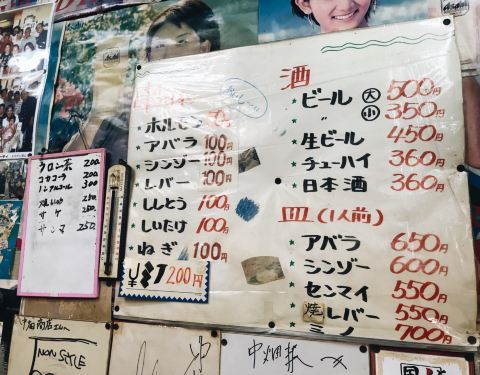 酒
ビール 大 500円
〃 小 350円
生ビール 450円
チューハイ 360円
日本酒 360円
皿(1人前)
アバラ 650円
シンゾー 600円
センマイ 550円
焼レバー 550円
ミノ 700円
ホルモン
アバラ 100円
シンゾー 100円
レバー 100円
ししとう 100円
しいたけ 100円
ねぎ 100円
200円
ウーロン茶 200
コカコーラ 200
ノンアルコール 300
250
サケ 250
サンマ 250
NON STYLE
中畑